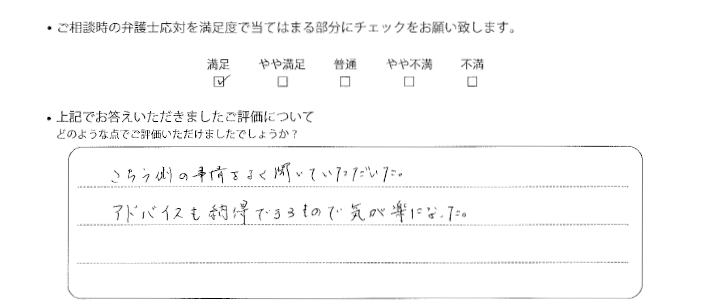 • ご相談時の弁護士応対を満足度で当てはまる部分にチェックをお願い致します。
満足 やや満足 普通 やや不満 不満
☑ □ □ □ □
• 上記でお答えいただきましたご評価について
どのような点でご評価いただけましたでしょうか？
こちら側の事情をよく聞いていただいた。
アドバイスも納得できるもので気が楽になった。